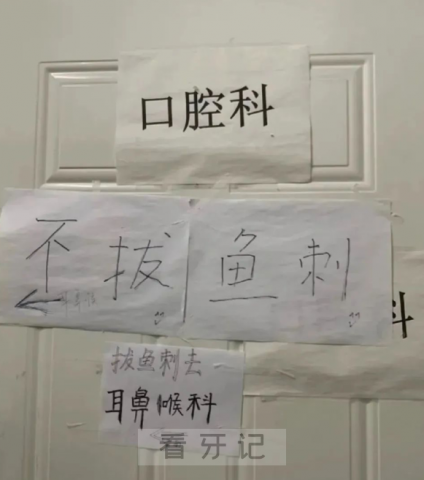 口腔科
不拔鱼刺
科
拔鱼刺去
耳鼻喉科
看牙记